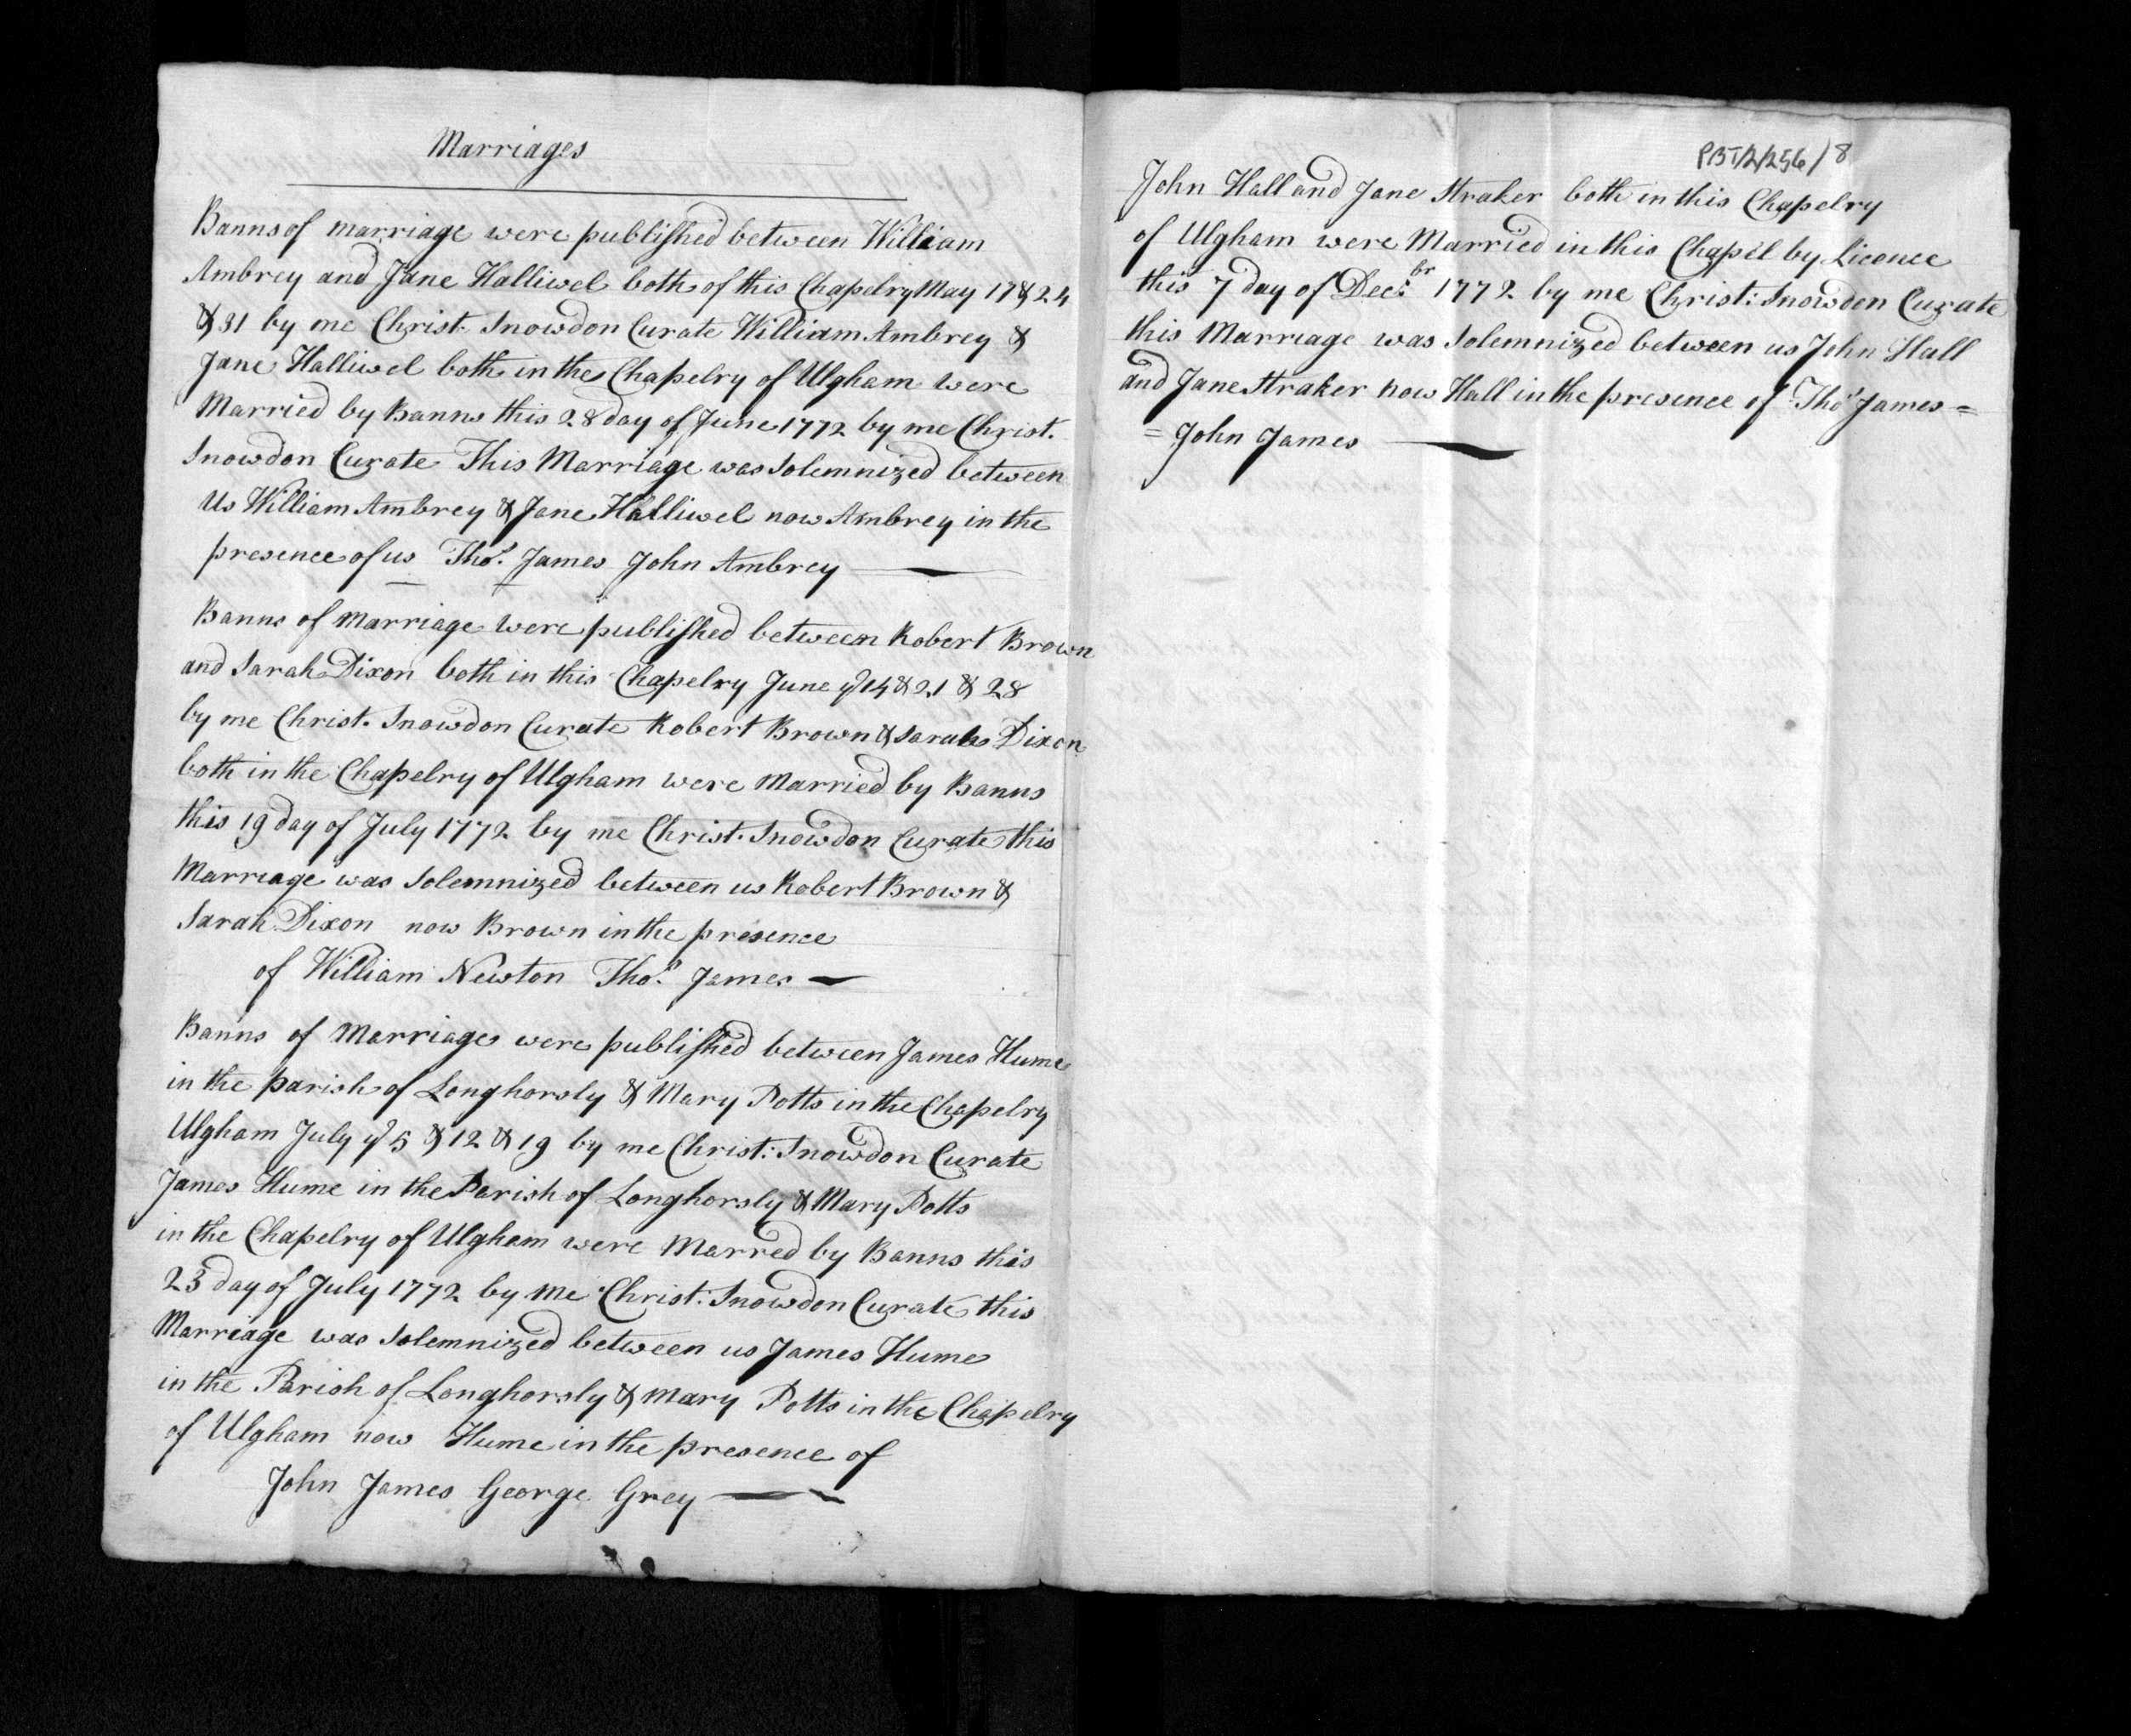 Marriages
Banns of marriage were published between William
Ambrey and Jane Halliwel both of this Chapelry May 17 & 24
& 31 by me Christ. Snowdon Curate William Ambrey &
Jane Halliwel both in the Chapelry of Ulgham were
Married by Banns this 28 day of June 1772 by me Christ.
Snowdon Curate This Marriage was Solemnized between
Us William Ambrey & Jane Halliwel now Ambrey in the
presence of us Thos. James John Ambrey
Banns of Marriage were published between Robert Brown
and Sarah Dixon both in this Chapelry June ye 14 & 21 & 28
by me Christ. Snowdon Curate Robert Brown & Sarah Dixon
both in the Chapelry of Ulgham were Married by Banns
this 19 day of July 1772 by me Christ. Snowdon Curate this
Marriage was Solemnized between us Robert Brown &
Sarah Dixon now Brown in the presence
of William Newton Thos. James
Banns of Marriage were published between James Hume
in the parish of Longhorsly & Mary Potts in the Chapelry
Ulgham July ye 5 & 12 & 19 by me Christ: Snowdon Curate
James Hume in the Parish of Longhorsly & Mary Potts
in the Chapelry of Ulgham were Marred by Banns this
23 day of July 1772 by Me Christ: Snowdon Curate this
Marriage was Solemnized between us James Hume
in the Parish of Longhorsly & Mary Potts in the Chapelry
of Ulgham now Hume in the presence of
John James George Grey
PBT/2/256/8
John Hall and Jane Straker both in this Chapelry
of Ulgham were Married in this Chapel by Licence
this 7 day of Decbr. 1772 by me Christ: Snowdon Curate
this Marriage was Solemnized between us John Hall
and Jane Straker now Hall in the presence of Thos James =
= John James